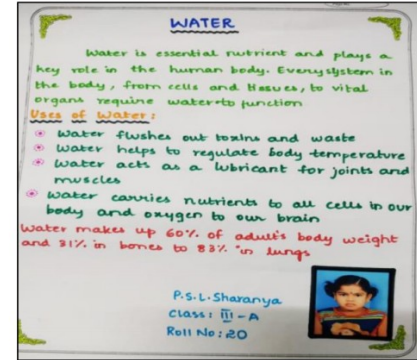 WATER
Water is essential nutrient and plays a
key role in the human body. Every system in
the body, from cells and tissues, to vital
organs require water to function
Uses of Water:
Water flushes out toxins and waste
Water helps to regulate body temperature
Water acts as a lubricant for joints and
muscles
Water carries nutrients to all cells in our
body and oxygen to our brain
Water makes up 60% of adult's body weight
and 31% in bones to 83% in lungs
P.S.L.Sharanya
Class: III-A
Roll No: 20